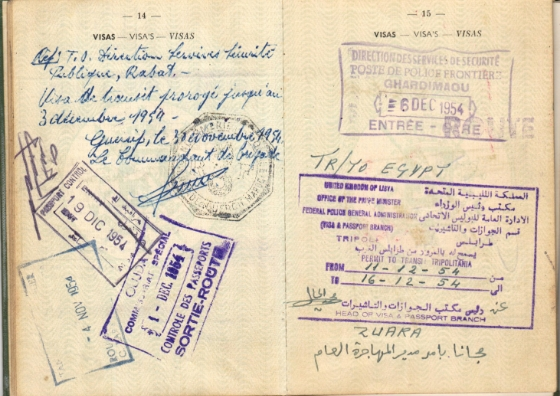 — 14 —
VISAS — VISA'S — VISAS
Ref: T.O. Direction Services Sécurité
Publique, Rabat. –
Visa de transit prorogé jusqu'au
3 décembre 1954 –
Guercif, le 30 novembre 1954
Le Commandant de brigade
PASSPORT CONTROL
19 DIC 1954
4 NOV 1954
OUJDA
COMMISSARIAT SPÉCIAL
1 - DEC. 1954
CONTROLE DES PASSEPORTS
SORTIE-ROUTE
— 15 —
VISAS — VISA'S — VISAS
DIRECTION DES SERVICES DE SÉCURITÉ
POSTE DE POLICE FRONTIÈRE
GHARDIMAOU
6 DEC 1954
ENTRÉE - GARE
TR/TO EGYPT
UNITED KINGDOM OF LIBYA
OFFICE OF THE PRIME MINISTER
FEDERAL POLICE GENERAL ADMINISTRATION
(VISA & PASSPORT BRANCH)
TRIPOLI
المملكة الليبية المتحدة
مكتب رئيس الوزراء
الادارة العامة للبوليس الاتحادي
قسم الجوازات والتأشيرات
طرابلس
يسمح له بالمرور من طرابلس الغرب
PERMIT TO TRANSIT TRIPOLITANIA
FROM 11-12-54 من
TO 16-12-54 الى
عن رئيس مكتب الجوازات والتأشيرات
HEAD OF VISA & PASSPORT BRANCH
ZUARA
مجانا بامر مدير المهاجرة العام